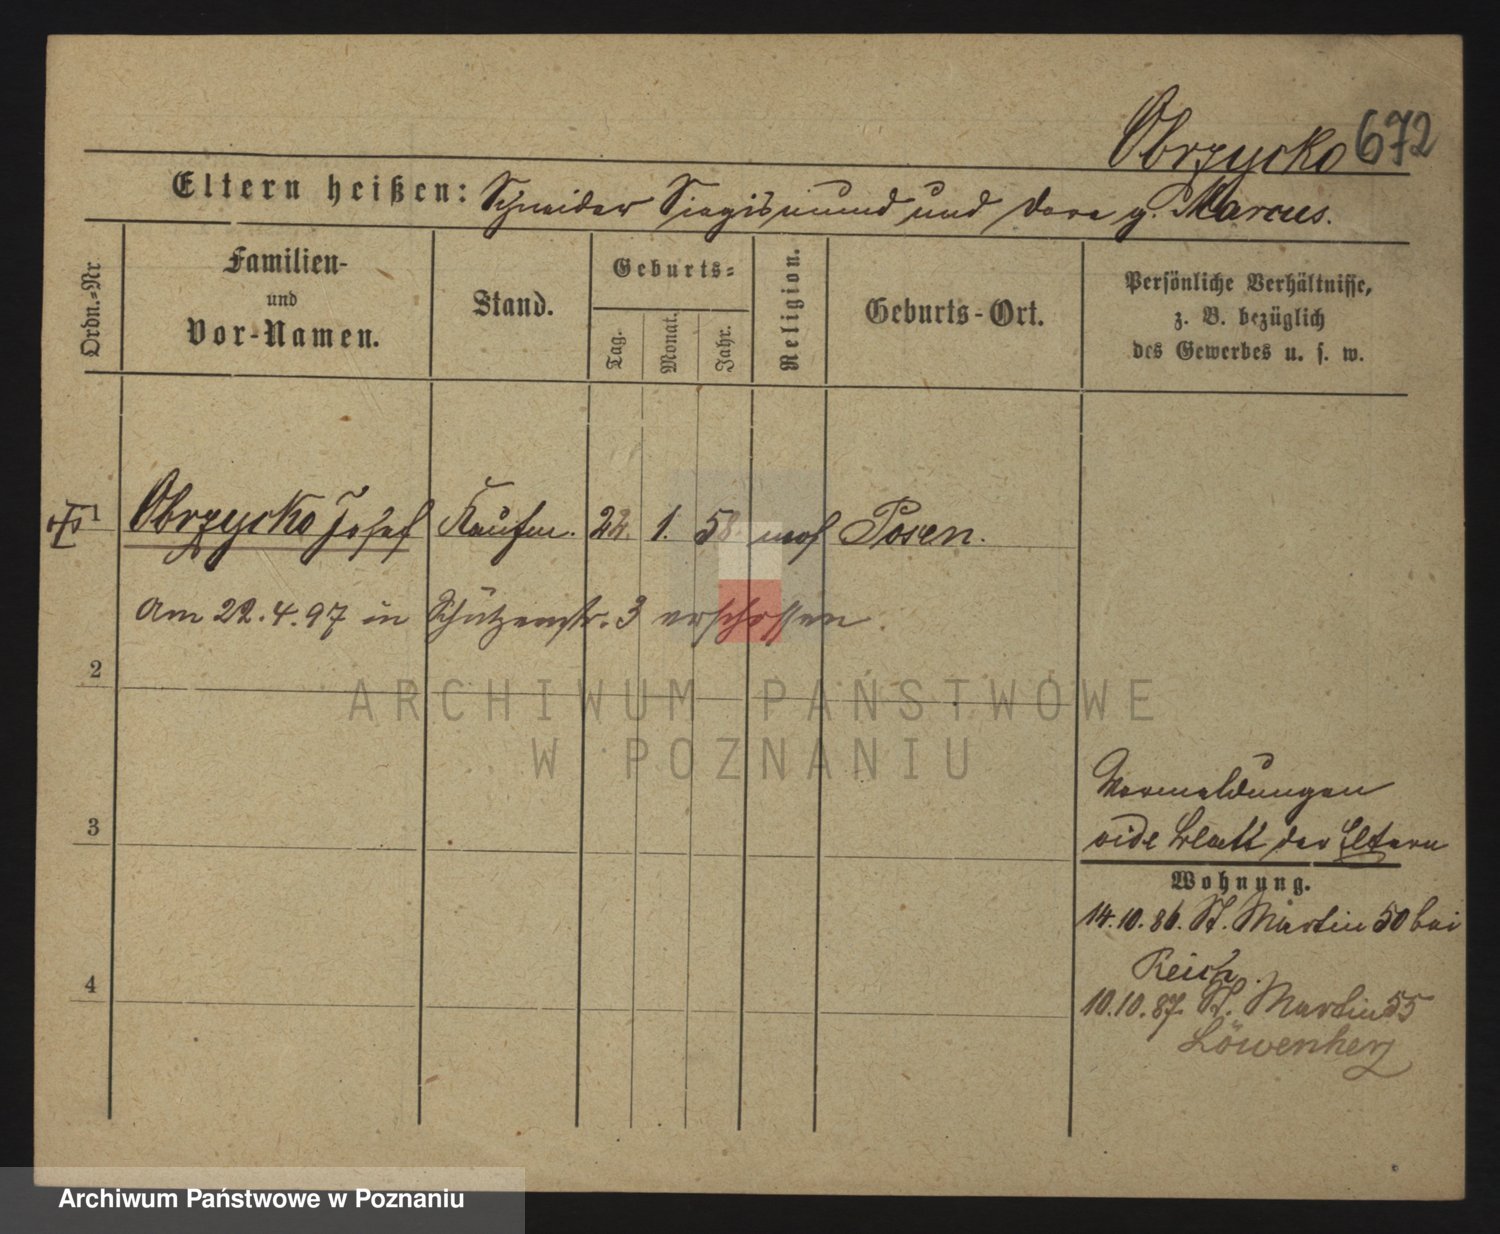 Obrzycko 672
Eltern heißen: Schneider Siegismund und Dore g. Marcus.
Ordn.-Nr.
Familien-
und
Vor-Namen.
Stand.
Geburts-
Tag.
Monat.
Jahr.
Religion.
Geburts-Ort.
Persönliche Verhältnisse,
z. B. bezüglich
des Gewerbes u. s. w.
1 Obrzycko Josef Kaufm. 22. 1. 58. mos Posen.
Am 22.4.97 in Schützenstr. 3 erschossen.
2
ARCHIWUM PAŃSTWOWE
W POZNANIU
3
4
Vermeldungen
vide Blatt der Eltern
Wohnung.
14.10.86. St. Martin 50 bei
Reich.
10.10.87. St. Martin 55
Löwenherz
Archiwum Państwowe w Poznaniu